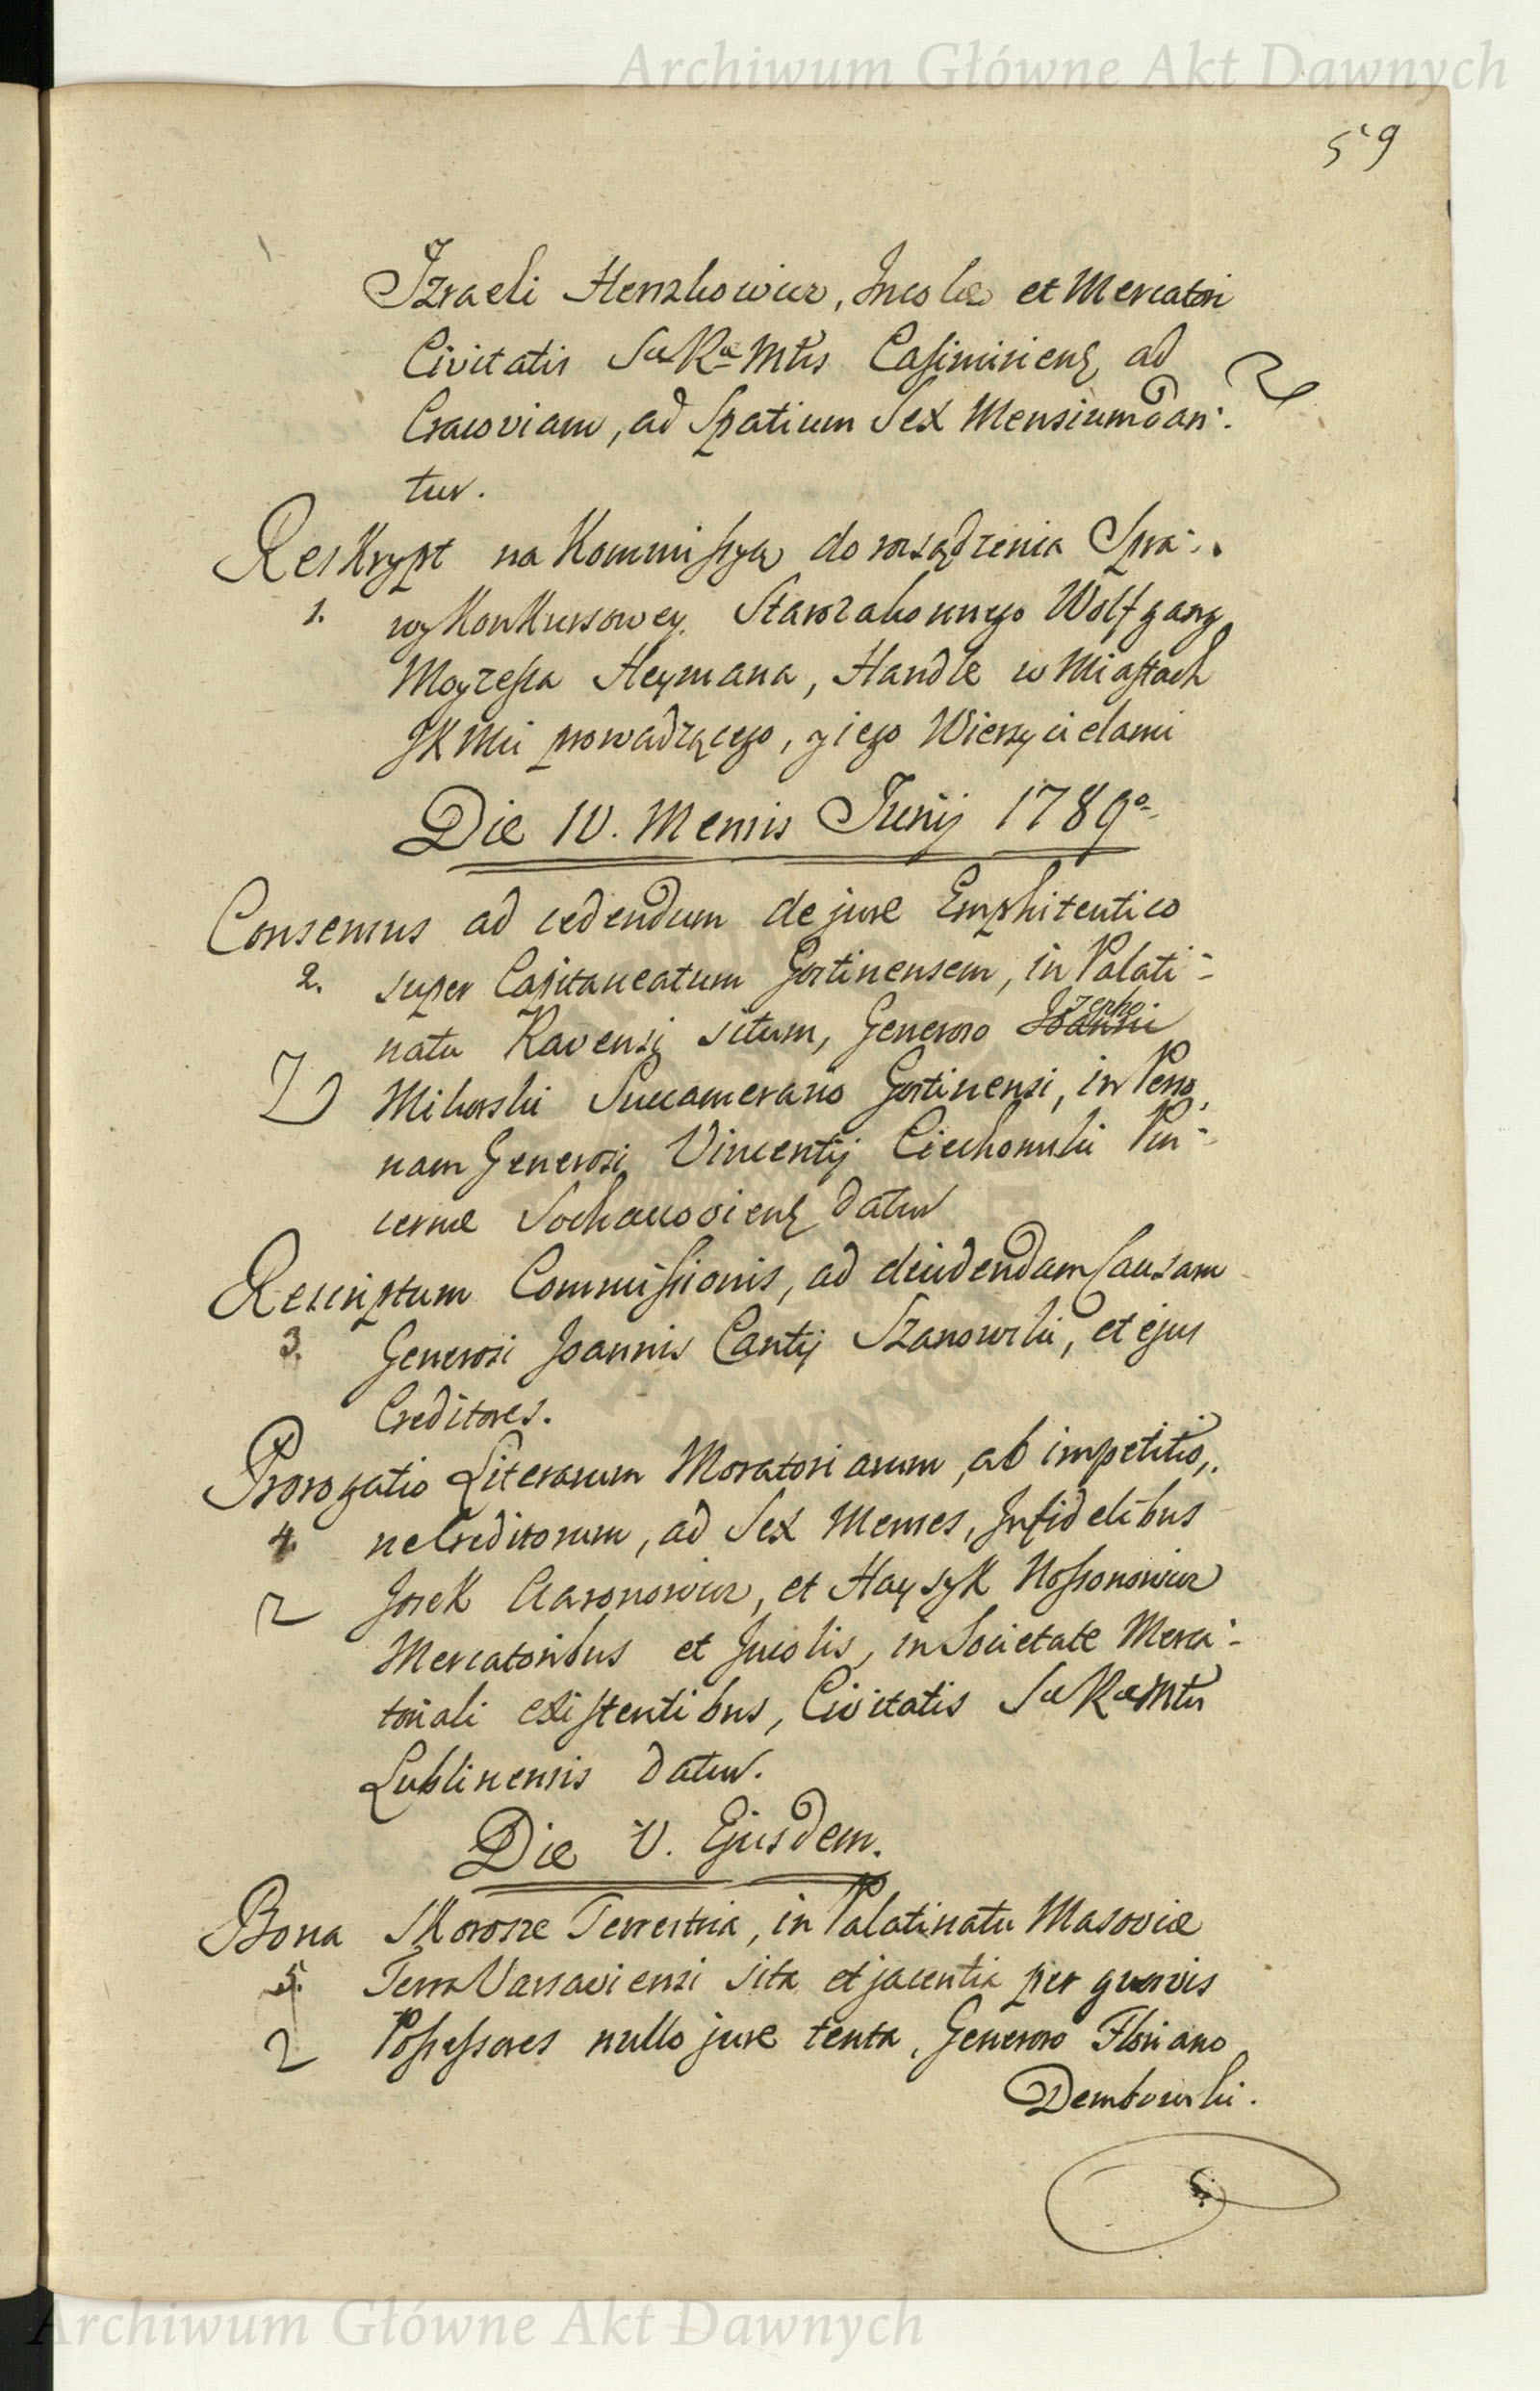 Archiwum Główne Akt Dawnych
59
Izraeli Herszkowicz, Incolæ et Mercatori
Civitatis Sæ Ræ Mtis Casimiriens ad
Cracoviam, ad Spatium Sex Mensium dan:
tur.
Reskrypt na Kommissyą do rozsądzenia Spra:
1. wy Konkursowey Starozakonnego Wolfgang
Moyzesza Heymana, Handle w Miastach
JKMci prowadzącego, z iego Wierzycielami
Die IV. Mensis Junij 1789o
Consensus ad cedendum de jure Emphiteutico
2. super Capitaneatum Gostinensem, in Palati-
natu Ravensi situm, Generoso Joanni Jozepho
Mikorski Succamerario Gostinensi, in Perso,
nam Generosi Vincentij Ciechomski Pin-
cernæ Sochaczoviens datur
Rescriptum Commissionis, ad decidendam Causam
3. Generosi Joannis Cantij Szanowski, et ejus
Creditores.
Prorogatio Literarum Moratoriarum, ab impetitio,
4. ne Creditorum, ad Sex Menses, Infidelibus
Josek Aaronowicz, et Haysyk Nossonowicz
Mercatoribus et Incolis, in Societate Merca-
toriali existentibus, Civitatis Sæ Ræ Mtis
Lublinensis datur.
Die V. Ejusdem.
Bona Skorosze Terrestria, in Palatinatu Masoviæ
5. Terra Varsaviensi sita et jacentia per quosvis
2 Possessores nullo jure tenta, Generoso Floriano
Dembowski.
Archiwum Główne Akt Dawnych